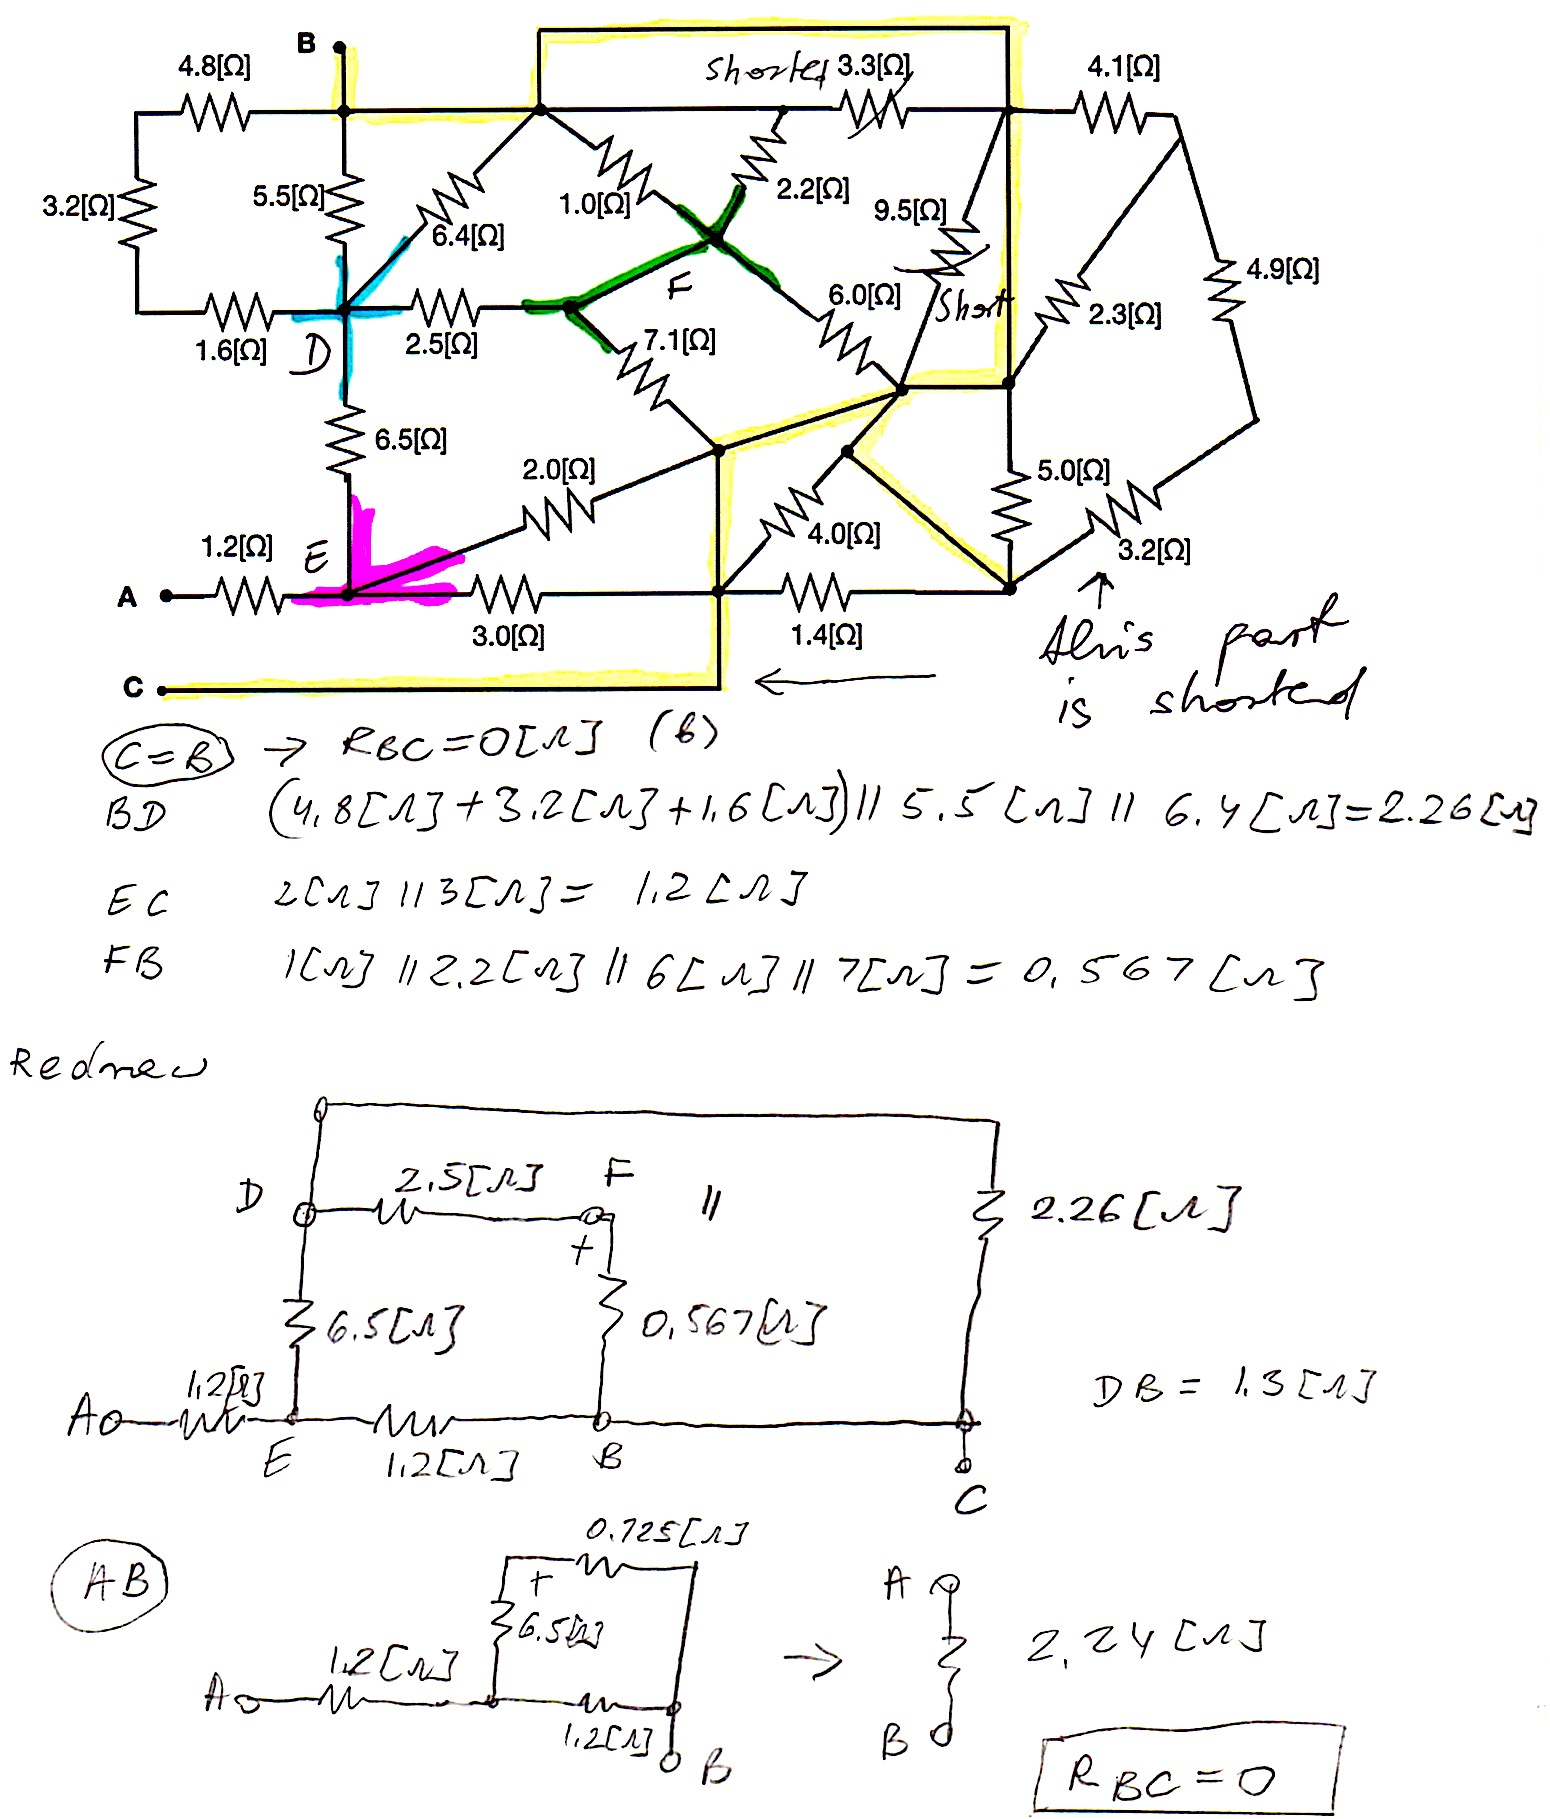 B
4.8[Ω]
shorted 3.3[Ω]
4.1[Ω]
3.2[Ω]
5.5[Ω]
6.4[Ω]
1.0[Ω]
2.2[Ω]
9.5[Ω]
4.9[Ω]
F
6.0[Ω]
Short
2.3[Ω]
1.6[Ω]
D
2.5[Ω]
7.1[Ω]
6.5[Ω]
2.0[Ω]
5.0[Ω]
4.0[Ω]
3.2[Ω]
1.2[Ω]
E
A
3.0[Ω]
1.4[Ω]
this part
is shorted
C
C=B → RBC=0[Ω] (b)
BD (4.8[Ω]+3.2[Ω]+1.6[Ω])|| 5.5[Ω] || 6.4[Ω]=2.26[Ω]
EC 2[Ω] || 3[Ω]= 1.2[Ω]
FB 1[Ω] || 2.2[Ω] || 6[Ω] || 7[Ω] = 0.567[Ω]
Redraw
D 2.5[Ω] F || 2.26[Ω]
+
6.5[Ω] 0.567[Ω]
1.2[Ω] DB = 1.3[Ω]
A
E 1.2[Ω] B
C
0.725[Ω]
AB + A
6.5[Ω]
1.2[Ω] → 2.24[Ω]
A
1.2[Ω] B B
RBC=0